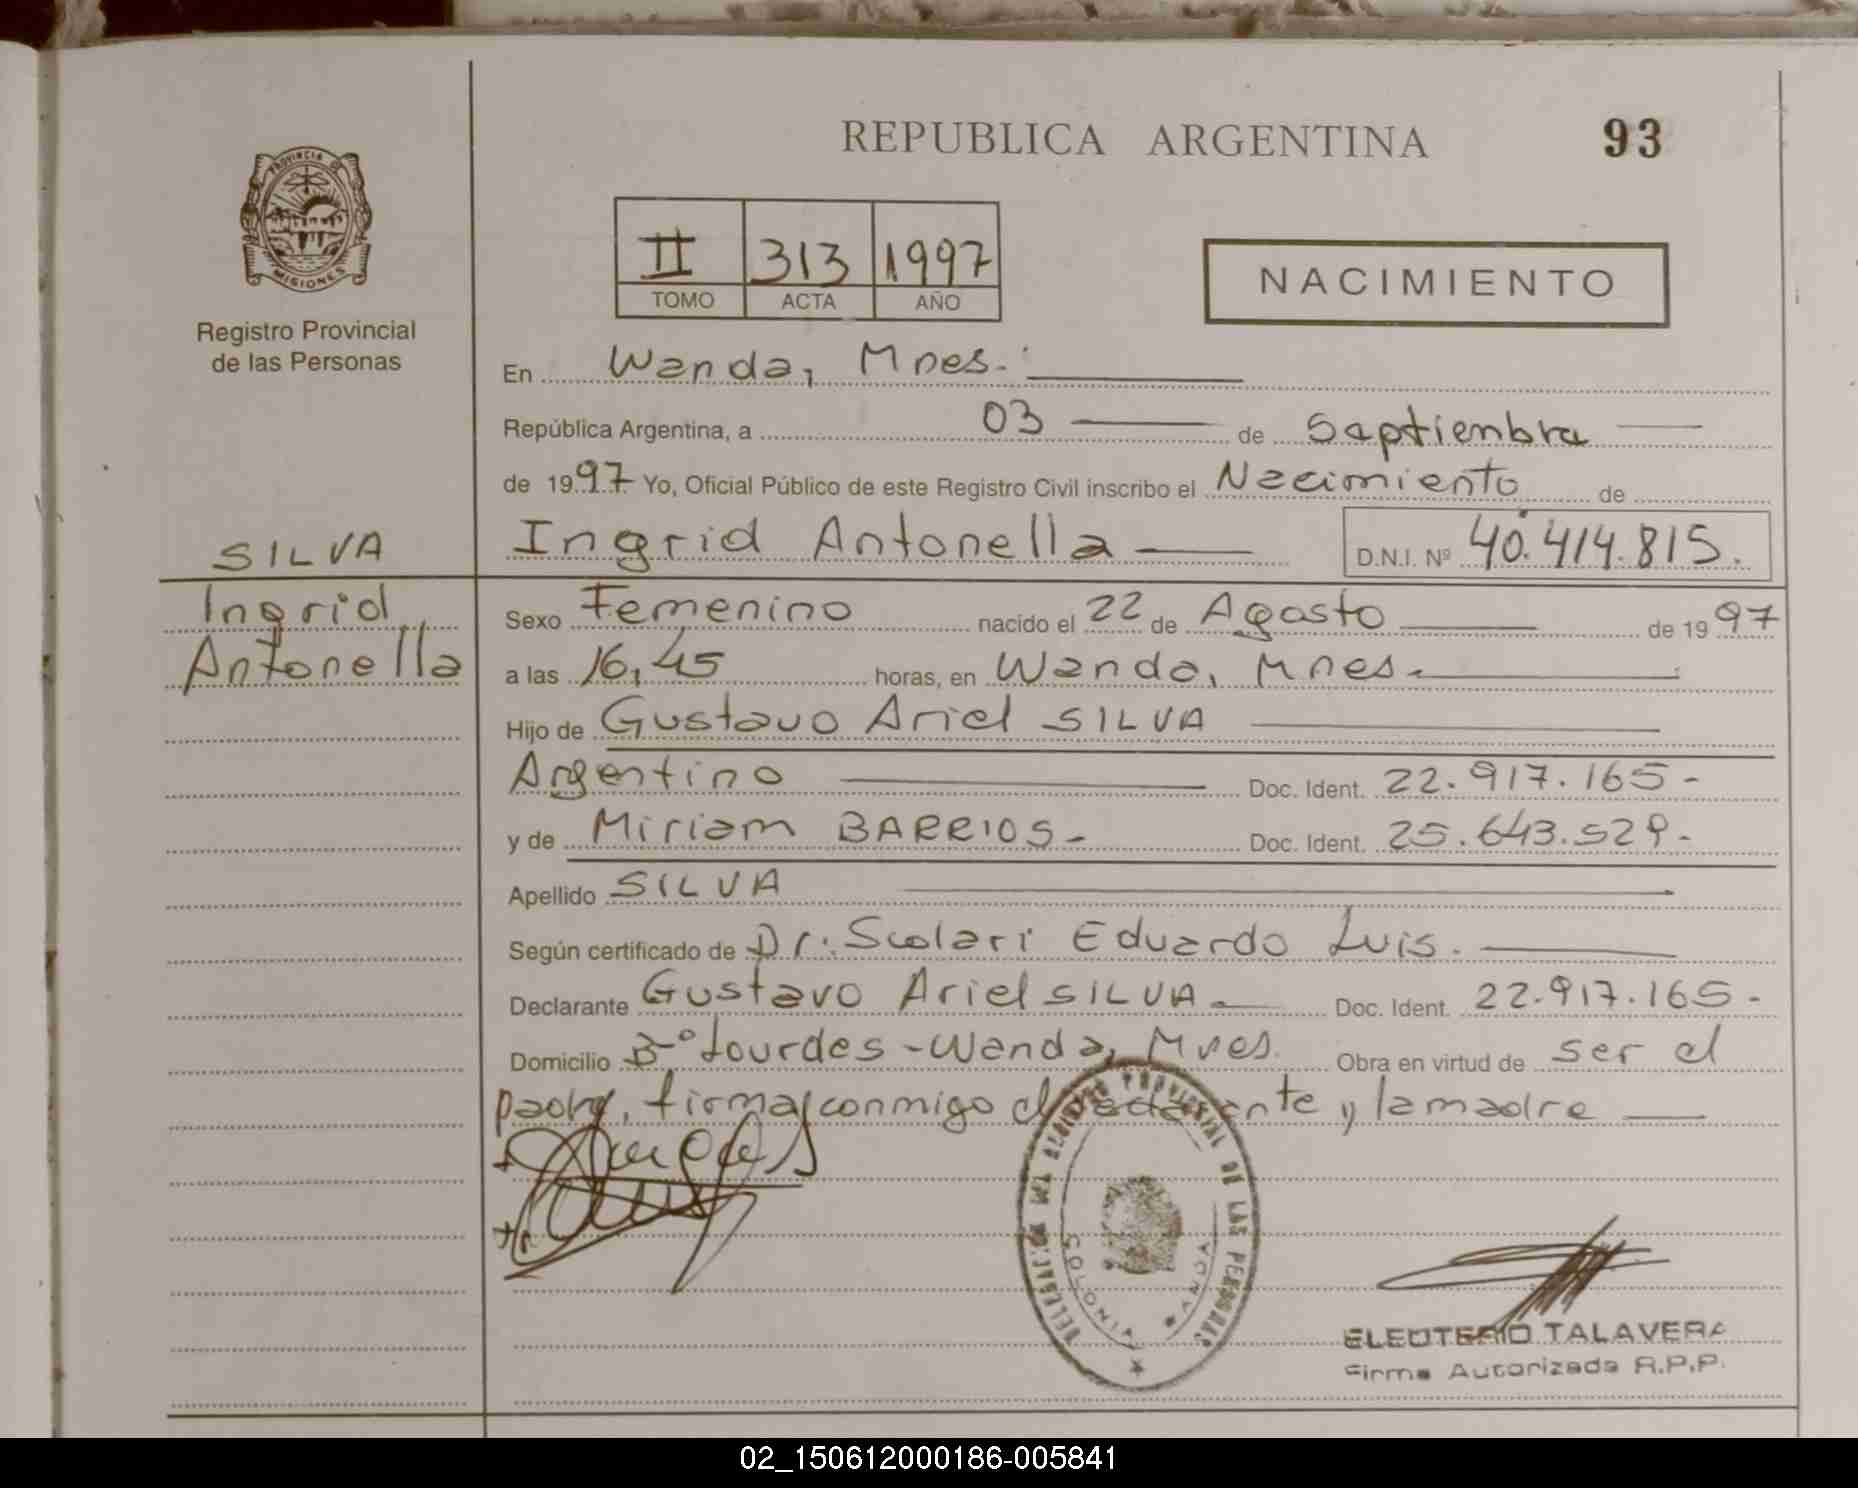 REPUBLICA ARGENTINA 93
PROVINCIA DE
MISIONES
Registro Provincial
de las Personas
II 313 1997
TOMO ACTA AÑO
NACIMIENTO
En Wanda, Mnes.
República Argentina, a 03 de Septiembre
de 1997 Yo, Oficial Público de este Registro Civil inscribo el Nacimiento de
SILVA
Ingrid
Antonella
Ingrid Antonella D.N.I. Nº 40.414.815.
Sexo Femenino nacido el 22 de Agosto de 1997
a las 16,45 horas, en Wanda, Mnes.
Hijo de Gustavo Ariel SILVA
Argentino Doc. Ident. 22.917.165-
y de Miriam BARRIOS- Doc. Ident. 25.643.529-
Apellido SILVA
Según certificado de Dr. Scolari Eduardo Luis.
Declarante Gustavo Ariel SILVA Doc. Ident. 22.917.165-
Domicilio B-º Lourdes-Wanda, Mnes. Obra en virtud de ser el
padre, firma conmigo el y la madre
DELEGACION DEL REGISTRO PROVINCIAL DE LAS PERSONAS
COLONIA WANDA
ELEUTERIO TALAVERA
Firma Autorizada R.P.P.
02_150612000186-005841